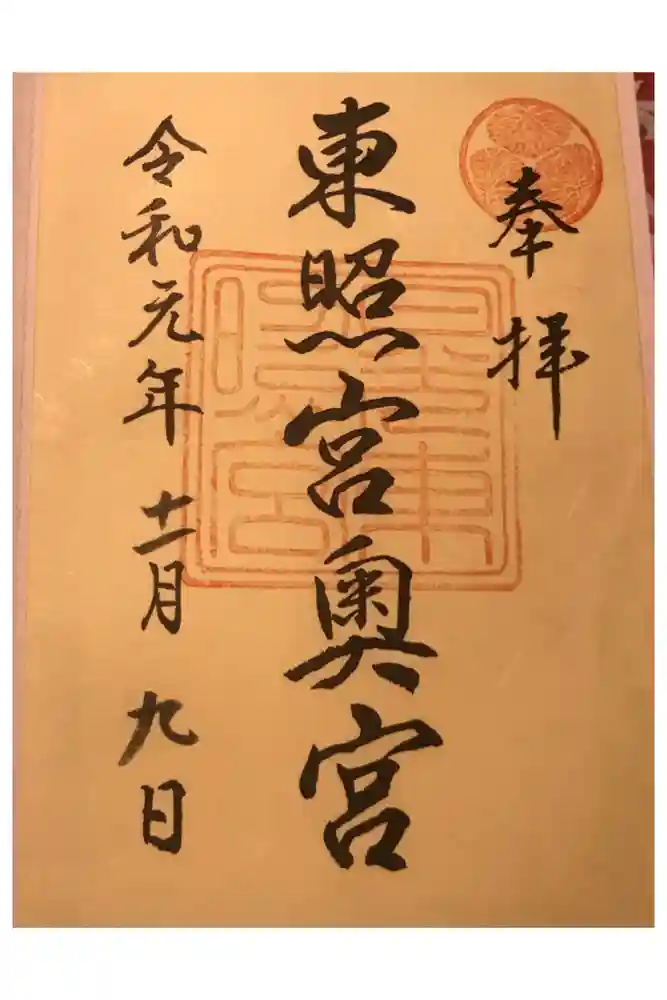 奉拝
東照宮奥宮
令和元年十一月九日